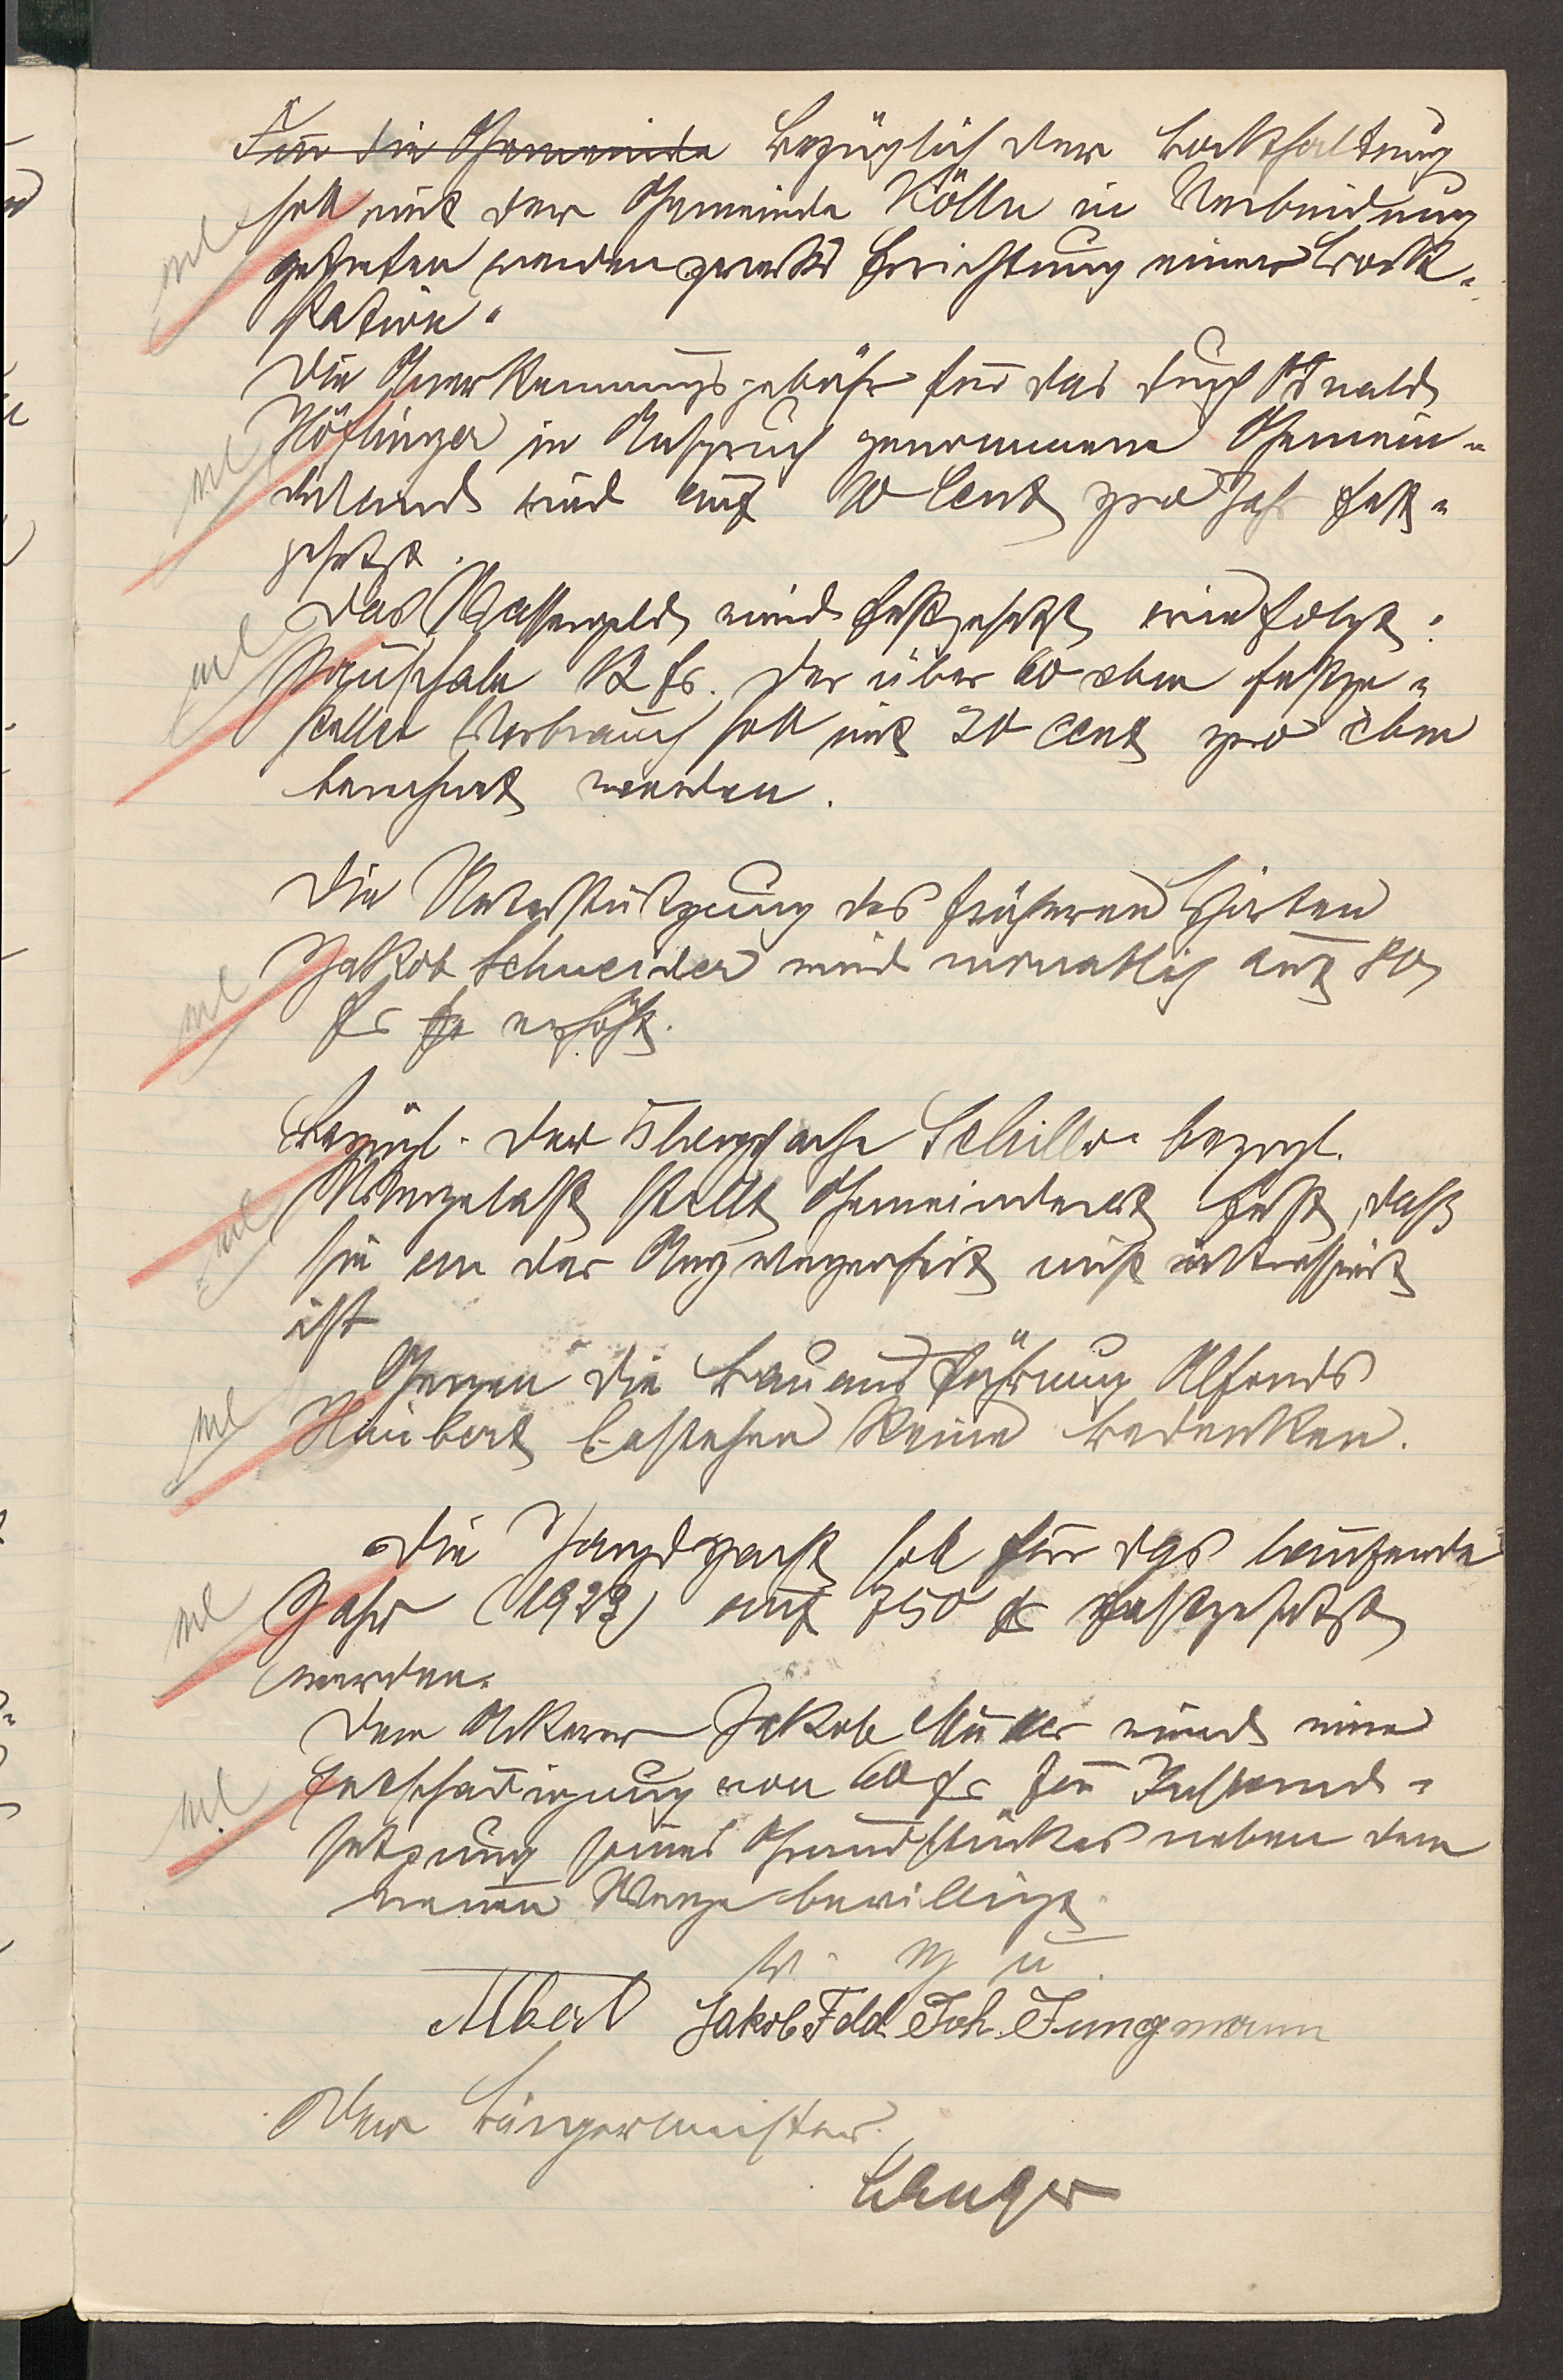 Für die Gemeinde Bezüglich der Bockhaltung
soll mit der Gemeinde Kölln in Verbindung
getreten werden zwecks Errichtung einer Bock-
station.
Die Anerkennungsgebühr für das durch Oswald
Höflinger in Anspruch genommene Gemein-
deland wird auf 10 Cent pro Jahr fest-
gesetzt.
Das Wassergeld wird festgesetzt wie folgt:
Pauschale 12 fr. Der über 60 cbm festge-
stellte Verbrauch soll mit 20 Cent pro cbm
berechnet werden.
Die Unterstützung des früheren Hirten
Jakob Schneider wird monatlich auf 80
fr fr erhöht.
Bezügl. der Klagesache Schiller bezgl.
stellt Gemeinderat fest, daß
sie an der Angelegenheit nicht interessiert
ist
Gegen die Bauausführung Alfons
Haubert bestehen keine Bedenken.
Die Jagdpacht soll für das laufende
Jahr (1923) auf 750 fr festgesetzt
werden.
Dem Ackerer Jakob Müller wird eine
Entschädigung von 60 fr für Instand-
setzung seines Grundstückes neben dem
neuen Wege bewilligt.
v. g. u.
Albert Jakob Feld Joh. Jungmann
Der Bürgermeister.